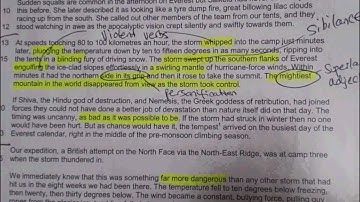 Sudden squalls are common in the afternoon on Everest but
10 this before. She later described it as looking like a tyre dump fire, great billowing lilac clouds
11 racing up from the South. She called out other members of the team from our tents, and they
12 stood watching in awe as the apocalyptic vision crept silently and swiftly towards them.
Sibilance
violent verbs
13 At speeds touching 80 to 100 kilometres an hour, the storm whipped into the camp just minutes
later, plunging the temperature down by ten to fifteen degrees in as many seconds, ripping into
15 the tents in a blinding fury of driving snow. The storm swept up the southern flanks of Everest
engulfing the ice-clad slopes effortlessly in a swirling mantle of hurricane-force winds. Within
minutes it had the northern side in its grip and then it rose to take the summit. The mightiest
mountain in the world disappeared from view as the storm took control.
adject
Personification
If Shiva, the Hindu god of destruction, and Nemesis, the Greek goddess of retribution, had joined
forces they could not have done a better job of devastation than nature itself did on that day. The
timing was uncanny, as bad as it was possible to be. If the storm had struck in winter then no one
would have been hurt. But as chance would have it, the tempest arrived on the busiest day of the
Everest calendar, right in the middle of the pre-monsoon climbing season.
Our expedition, a British attempt on the North Face via the North-East Ridge, was at camp three
when the storm thundered in.
We immediately knew that this was something far more dangerous than any other storm that had
hit us in the eight weeks we had been there. The temperature fell to ten degrees below freezing,
then twenty, then thirty degrees below. The wind became a constant, bullying force, pulling